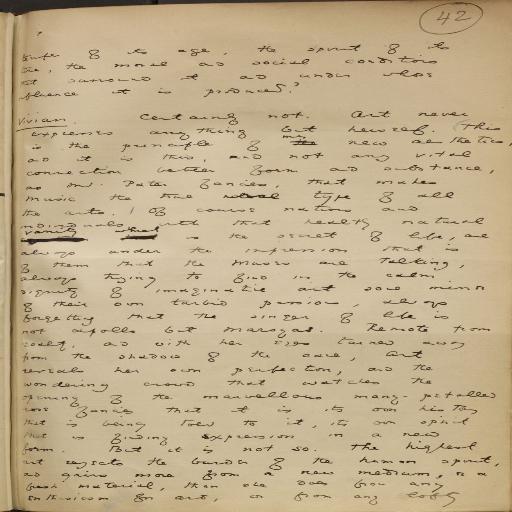 42
of its age, the spirit of its
time, the moral and social conditions
that surround it and under whose
influence it is produced?
Vivian. Certainly not. Art never
expresses anything but herself. This
is the principle of my new aesthetics,
and it is this, and not any vital
connection between form and substance,
as Mr. Pater fancies, that makes
music the true type of all
the arts. Of course nations and
individuals with that healthy natural
vanity which is the secret of life, are
always under the impression that it is
of them that the Muses are talking,
always trying to find in the calm
dignity of imaginative art some mirror
of their own turbid passions, always
forgetting that the singer of life is
not Apollo but Marsyas. Remote from
reality, and with her eyes turned away
from the shadows of the cave, Art
reveals her own perfection, and the
wondering crowd that watches the
opening of the marvellous many-petalled
rose fancies that it is its own history
that is being told to it, its own spirit
that is finding expression in a new
form. But it is not so. The highest
art rejects the burden of the human spirit,
and gains more from a new medium, or a
fresh material, than she does from any
enthusiasm for art, or from any lofty